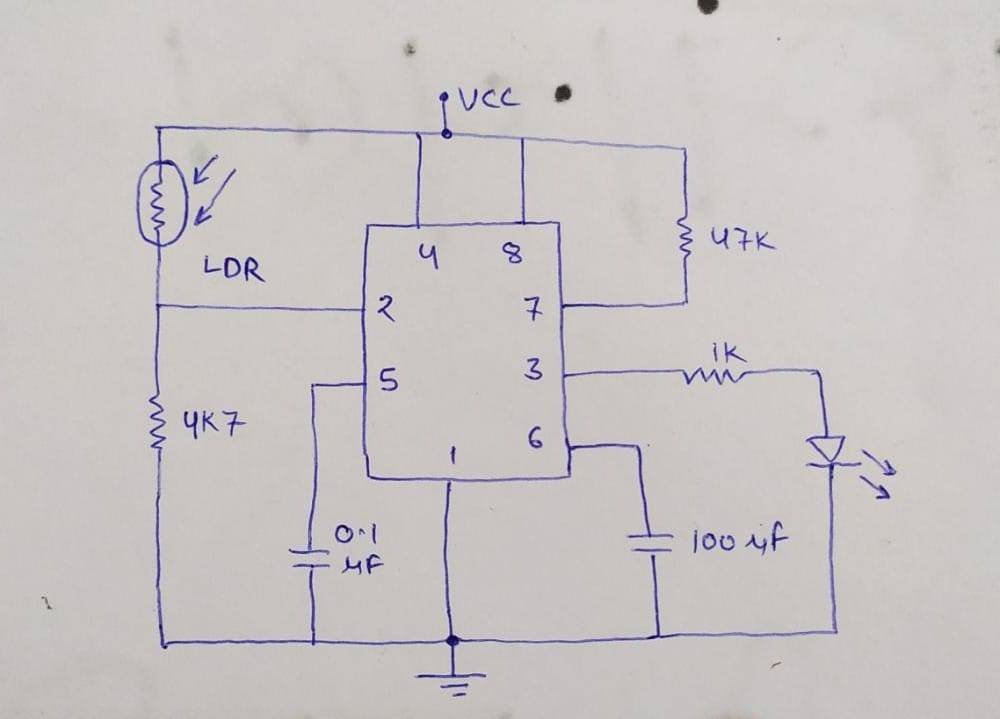 VCC
4 8
47K
LDR
2 7
1K
5 3
4K7
6
1
0.1
μF
100 μF